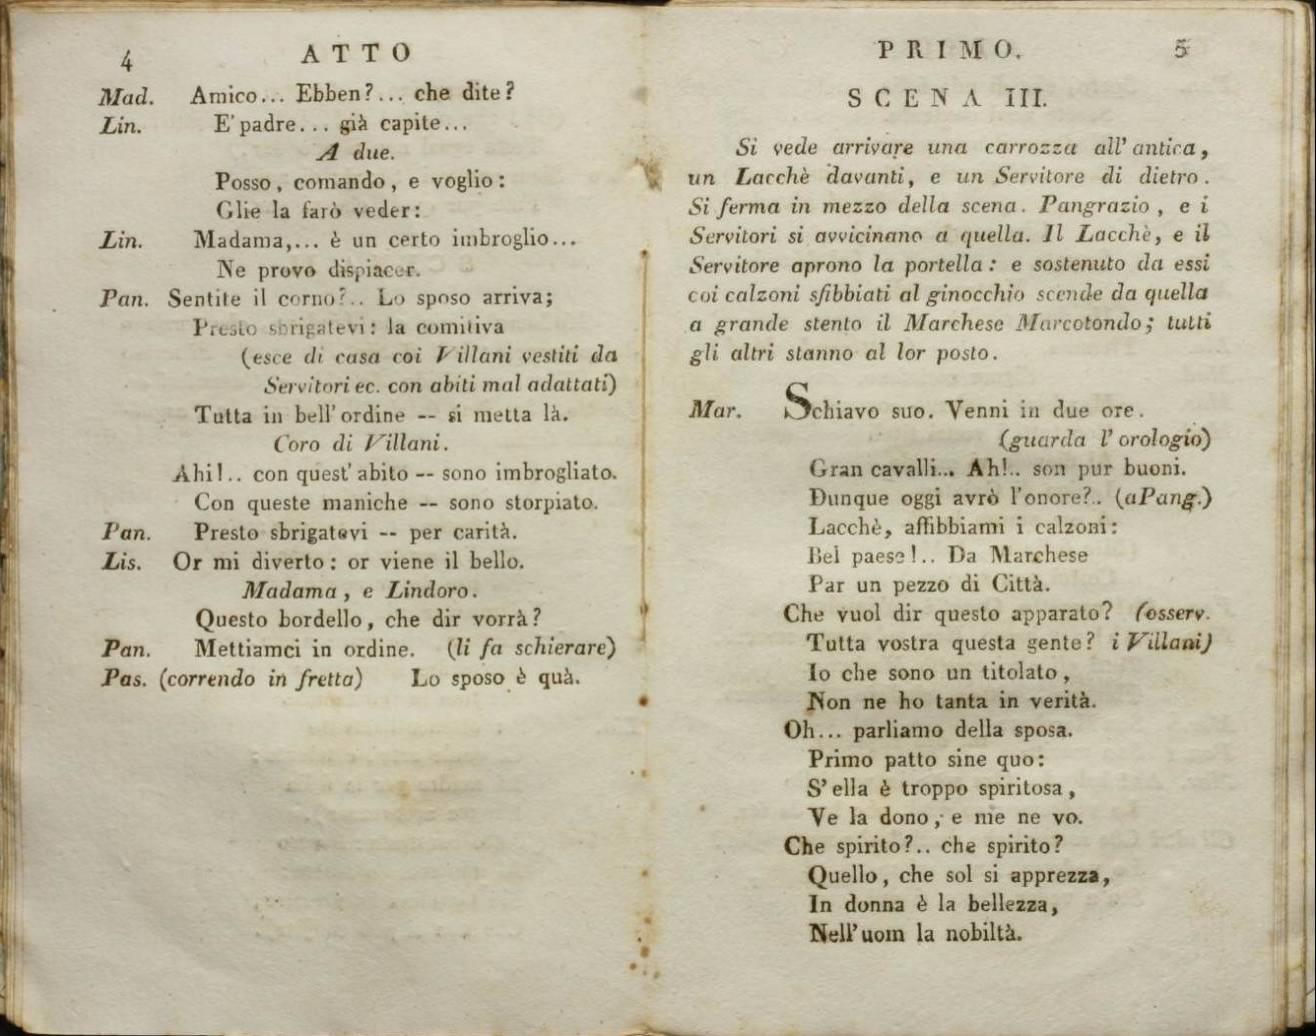 4 ATTO
Mad. Amico... Ebben?... che dite?
Lin. E' padre... già capite...
A due.
Posso, comando, e voglio:
Glie la farò veder:
Lin. Madama,... è un certo imbroglio...
Ne provo dispiacer.
Pan. Sentite il corno?.. Lo sposo arriva;
Presto sbrigatevi: la comitiva
(esce di casa coi Villani vestiti da
Servitori ec. con abiti mal adattati)
Tutta in bell' ordine -- si metta là.
Coro di Villani.
Ahi!.. con quest' abito -- sono imbrogliato.
Con queste maniche -- sono storpiato.
Pan. Presto sbrigatevi -- per carità.
Lis. Or mi diverto: or viene il bello.
Madama, e Lindoro.
Questo bordello, che dir vorrà?
Pan. Mettiamci in ordine. (li fa schierare)
Pas. (correndo in fretta) Lo sposo è quà.
PRIMO. 5
SCENA III.
Si vede arrivare una carrozza all' antica,
un Lacchè davanti, e un Servitore di dietro.
Si ferma in mezzo della scena. Pangrazio, e i
Servitori si avvicinano a quella. Il Lacchè, e il
Servitore aprono la portella: e sostenuto da essi
coi calzoni sfibbiati al ginocchio scende da quella
a grande stento il Marchese Marcotondo; tutti
gli altri stanno al lor posto.
Mar. Schiavo suo. Venni in due ore.
(guarda l' orologio)
Gran cavalli... Ah!.. son pur buoni.
Dunque oggi avrò l'onore?.. (a Pang.)
Lacchè, affibbiami i calzoni:
Bel paese!.. Da Marchese
Par un pezzo di Città.
Che vuol dir questo apparato? (osserv.
Tutta vostra questa gente? i Villani)
Io che sono un titolato,
Non ne ho tanta in verità.
Oh... parliamo della sposa.
Primo patto sine quo:
S' ella è troppo spiritosa,
Ve la dono, e me ne vo.
Che spirito?.. che spirito?
Quello, che sol si apprezza,
In donna è la bellezza,
Nell' uom la nobiltà.